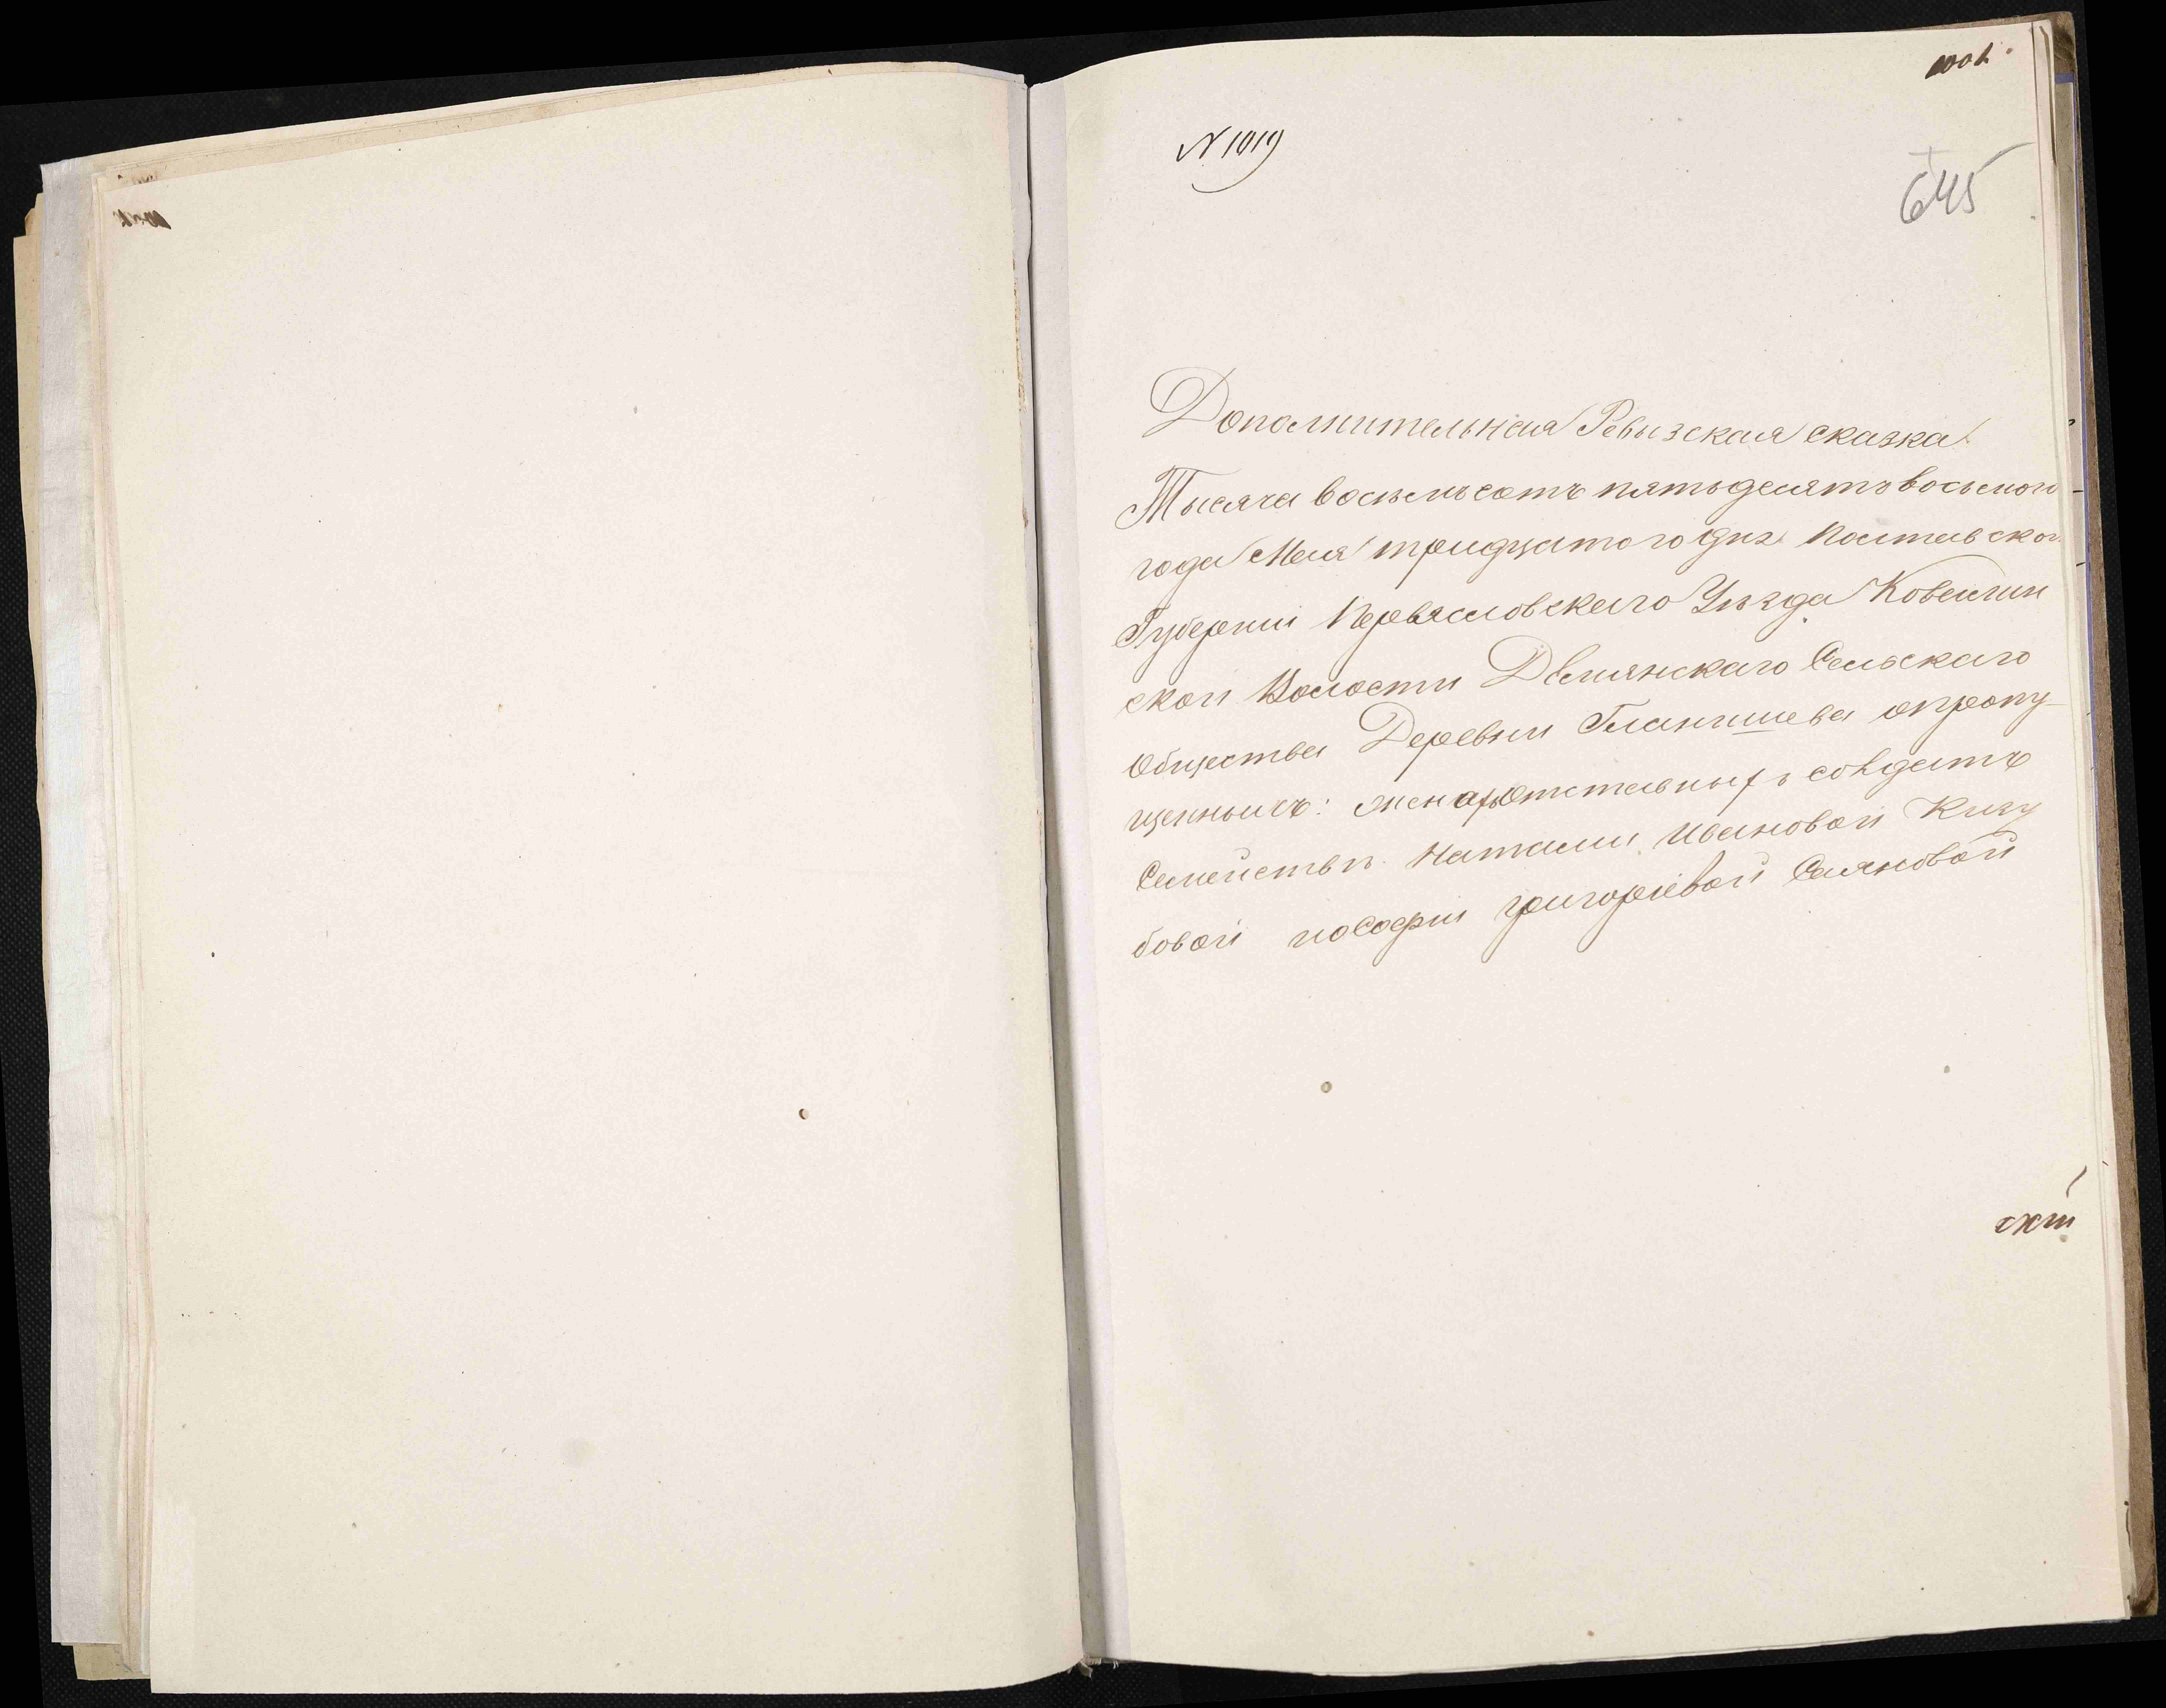 N 1019
645
Дополнительная Ревизская сказка
Тысяча восемьсотъ пятьдесятъ восьмого
года Мая тридцатого дня Полтавской
Губернии Переяславского Уезда Ковалин
ской Волости Девичанскаго Сельскаго
Общества Деревни Гланишева опропу-
щенныхъ: женахъ отставныхъ солдатъ
Семействъ Натальи Ивановой Кизу
бовой и Софии Григориевой Саяновой